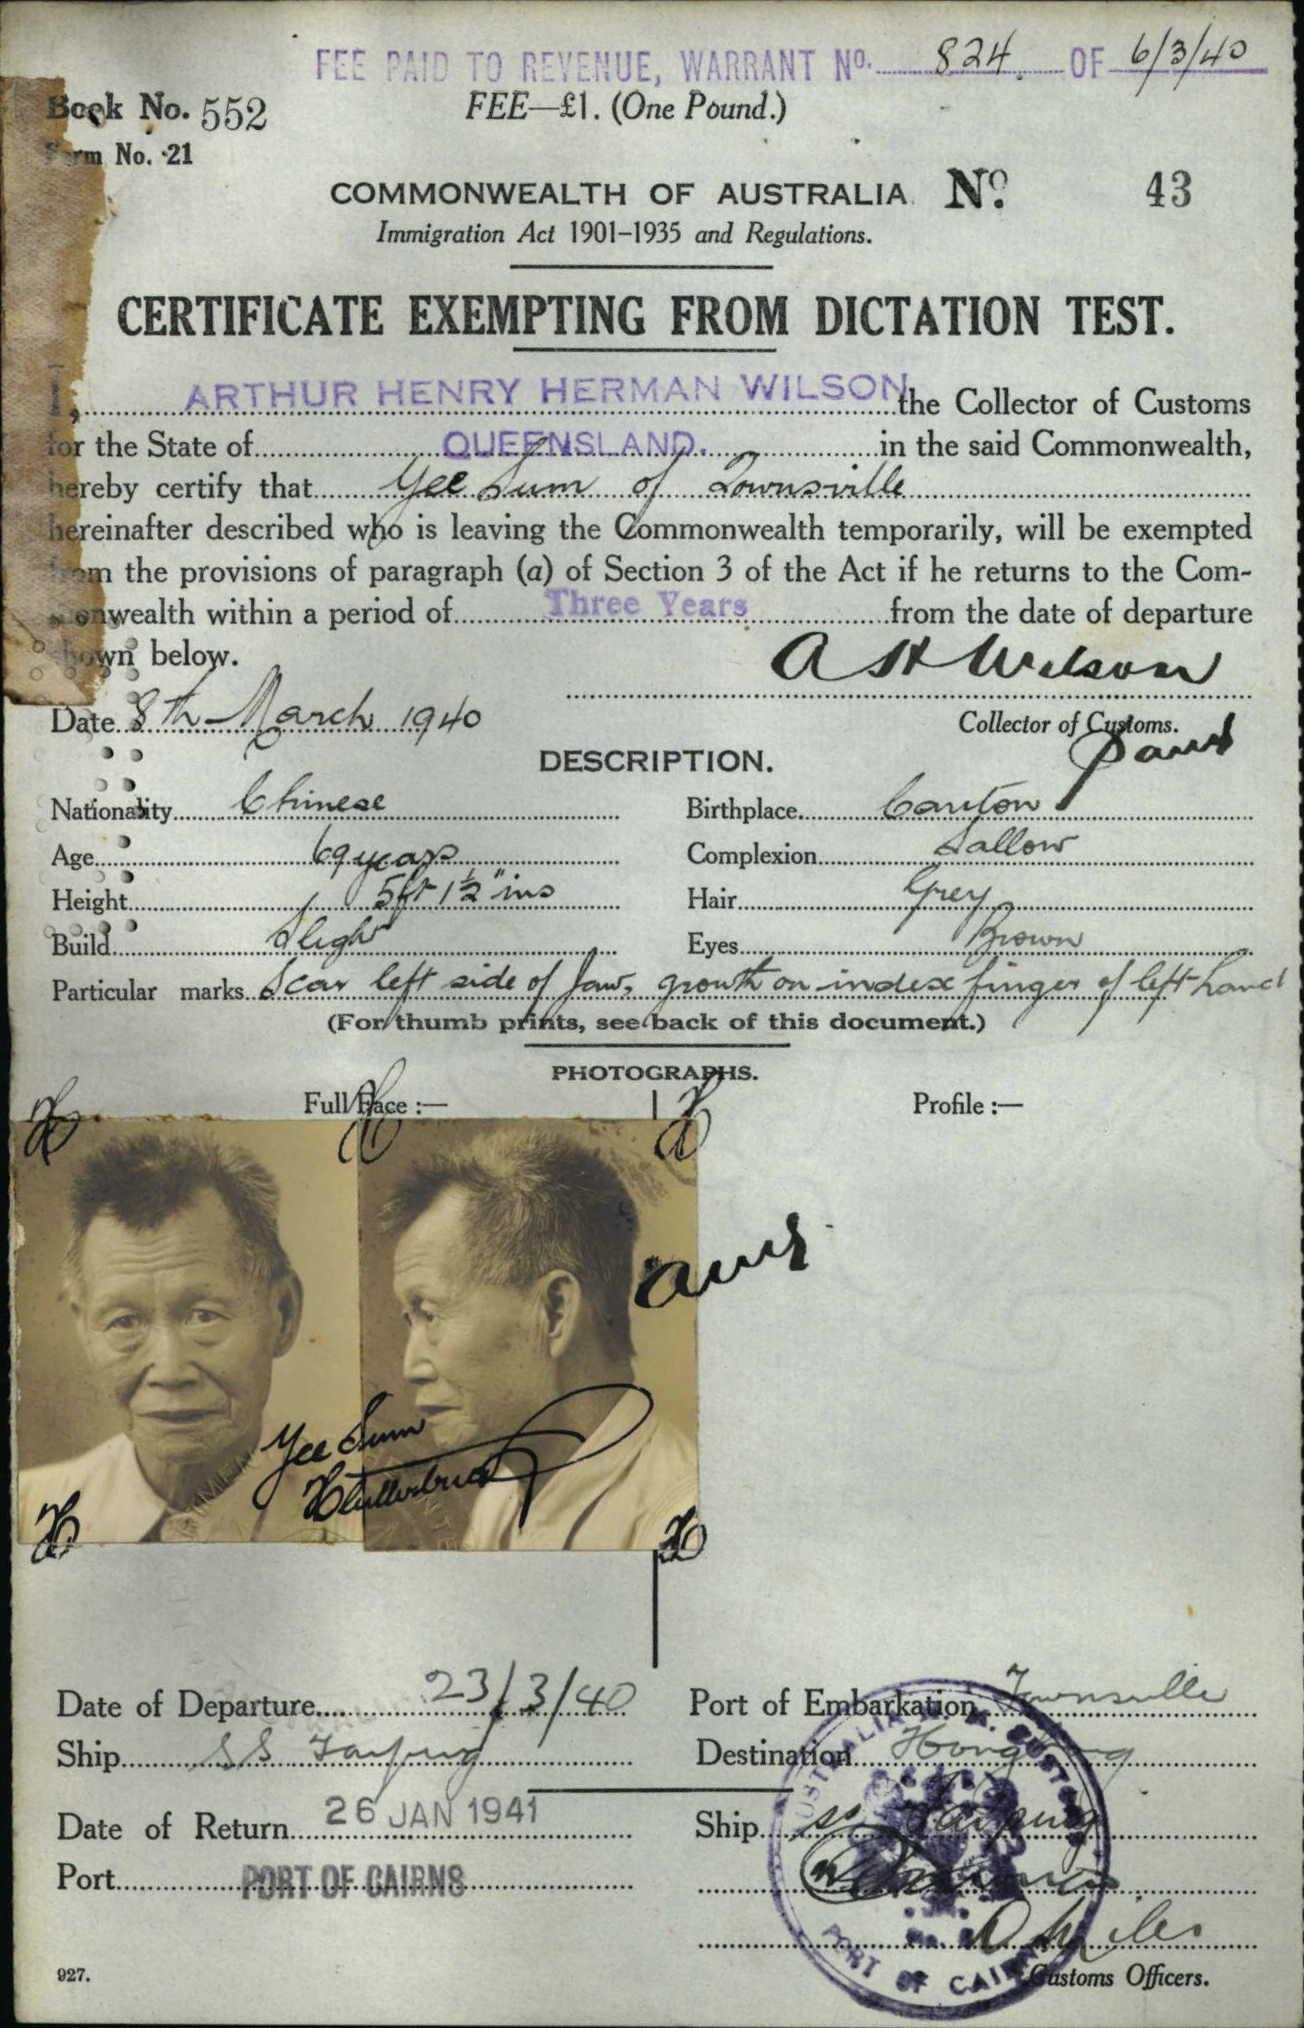 FEE PAID TO REVENUE, WARRANT No. 824 OF 6/3/40
Book No. 552
FEE—£1. (One Pound.)
Form No. 21
COMMONWEALTH OF AUSTRALIA. No. 43
Immigration Act 1901-1935 and Regulations.
CERTIFICATE EXEMPTING FROM DICTATION TEST.
I, ARTHUR HENRY HERMAN WILSON the Collector of Customs
for the State of QUEENSLAND. in the said Commonwealth,
hereby certify that Yee Sum of Townsville
hereinafter described who is leaving the Commonwealth temporarily, will be exempted
from the provisions of paragraph (a) of Section 3 of the Act if he returns to the Com-
monwealth within a period of Three Years from the date of departure
shown below.
A H Wilson
Date 8th March 1940
Collector of Customs.
DESCRIPTION.
Nationality Chinese Birthplace Canton
Age 69 years Complexion Sallow
Height 5ft 1½" ins Hair Grey
Build Slight Eyes Brown
Particular marks Scar left side of Jaw, growth on index finger of left hand
(For thumb prints, see back of this document.)
PHOTOGRAPHS.
Full Face :— Profile :—
Yee Sum
Date of Departure 23/3/40 Port of Embarkation Townsville
Ship SS Taiping Destination Hong Kong
Date of Return 26 JAN 1941 Ship ss Taiping
Port PORT OF CAIRNS
PORT OF CAIRNS
927.
Customs Officers.